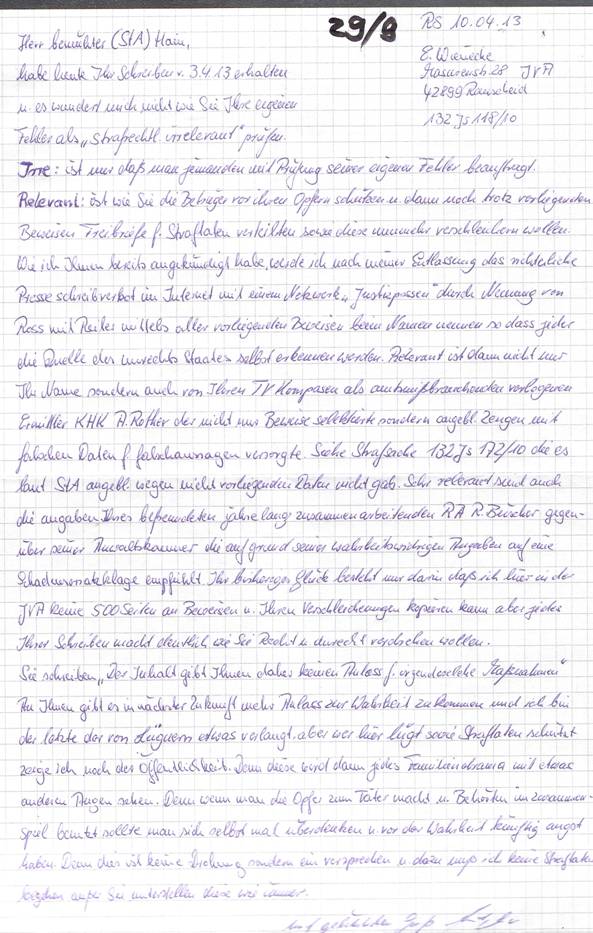 29/8
RS 10.04.13
Herr bemühter (StA) Hain,
E. Wienecke
habe heute Ihr Schreiben v. 3.4.13 erhalten
Masurenstr. 28 JVA
u. es wundert mich nicht wie Sie Ihre eigenen
42899 Remscheid
Fehler als „Strafrechtl. irrelevant“ prüfen.
132 Js 118/10
Irre: ist nur daß man jemanden mit Prüfung seiner eigenen Fehler beauftragt.
Relevant: ist wie Sie die Betrüger vor ihren Opfern schützen u. dann noch trotz vorliegenden
Beweisen Freibriefe f. Straftaten verteilten sowie diese nunmehr verschleiern wollen.
Wie ich Ihnen bereits angekündigt habe, werde ich nach meiner Entlassung das richterliche
Presse schreibverbot im Internet mit einem Netzwerk „Justizpossen“ durch Nennung von
Ross mit Reiter mittels aller vorliegenden Beweisen beim Namen nennen so dass jeder
die Quelle des unrechts Staates selbst erkennen werden. Relevant ist dann nicht nur
Ihr Name sondern auch von Ihren TV Kompasen als amtsmißbrauchenden verlogenen
Ermittler KHK A. Rother der nicht nur Beweise selektierte sondern angebl. Zeugen mit
falschen Daten f. falschaussagen versorgte. Siehe Strafsache 132 Js 172/10 die es
laut StA angebl. wegen nicht vorliegenden Daten nicht gab. Sehr relevant sind auch
die angaben Ihres befreundeten jahre lang zusammenarbeitenden RA R. Büscher gegen-
über seiner Anwaltskammer die auf grund seiner wahrheitswidrigen Angaben auf eine
Schadensersatzklage empfiehlt. Ihr bisheriges Glück besteht nur darin daß ich hier in der
JVA keine 500 Seiten an Beweisen u. Ihren Verschleierungen kopieren kann aber jedes
Ihrer Schreiben macht deutlich wie Sie Recht u. unrecht verdrehen wollen.
Sie schreiben „Der Inhalt gibt Ihnen daher keinen Anlass f. irgendwelche Maßnahmen“
An Ihnen gibt es in nächster Zukunft mehr Anlass zur Wahrheit zu kommen und ich bin
der letzte der von Lügnern etwas verlangt, aber wer hier lügt sowie Straftaten schützt
zeige ich noch der Öffentlichkeit. Denn diese wird dann jedes Familiendrama mit etwas
anderen Augen sehen. Denn wenn man die Opfer zum Täter macht u. Behörden im zusammen-
spiel benutzt sollte man sich selbst mal überdenken u. vor der Wahrheit künftig angst
haben. Denn dies ist keine Drohung sondern ein versprechen u. dazu muß ich keine Straftaten
begehen außer Sie unterstellen diese wie immer.
mit gebührenden Gruß